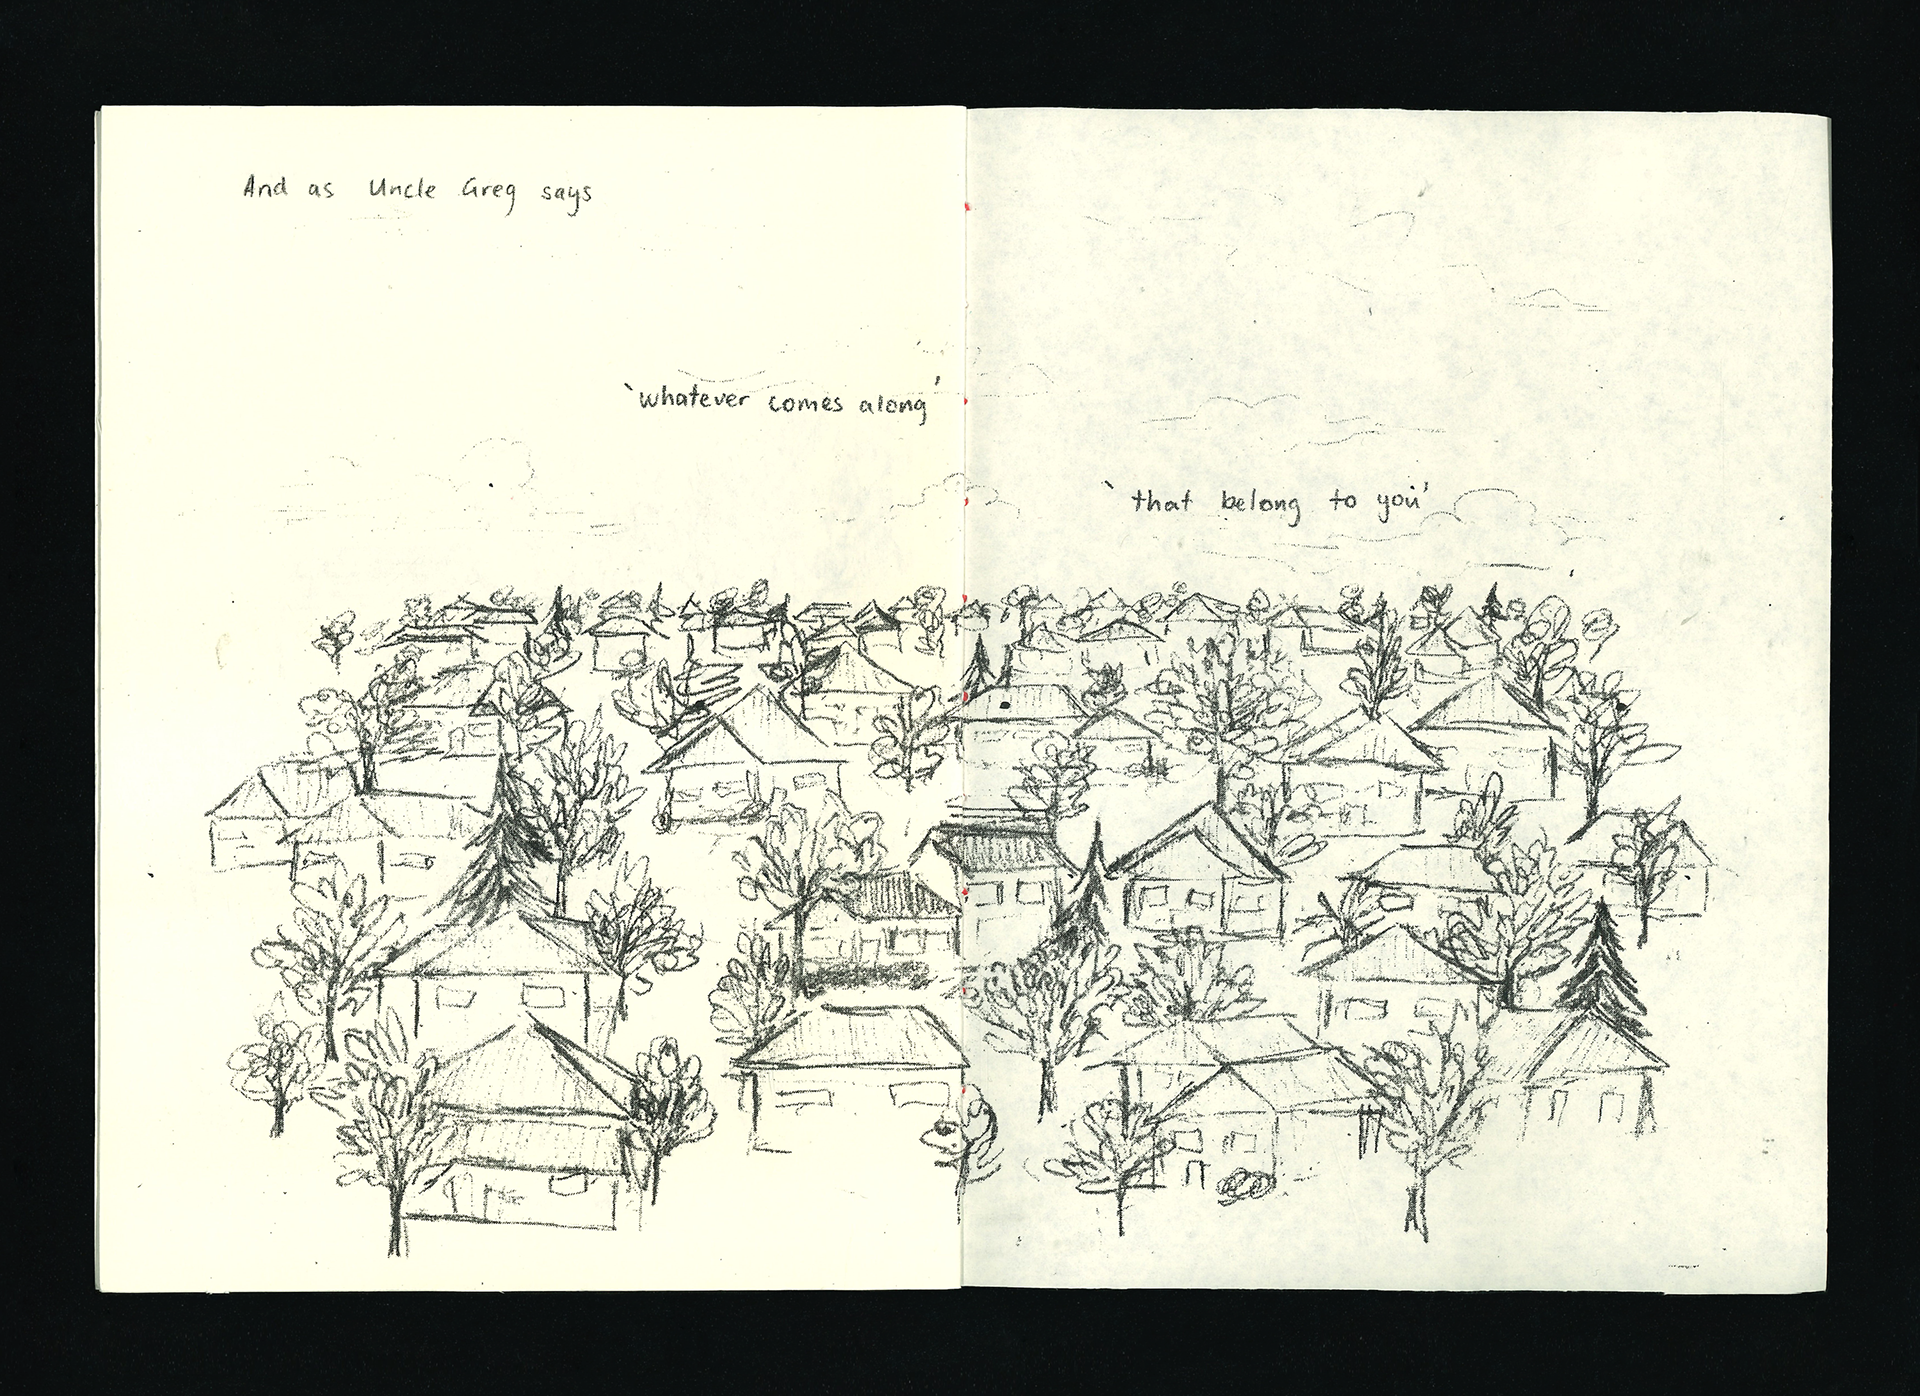 And as Uncle Greg says
`whatever comes along'
`that belong to you'